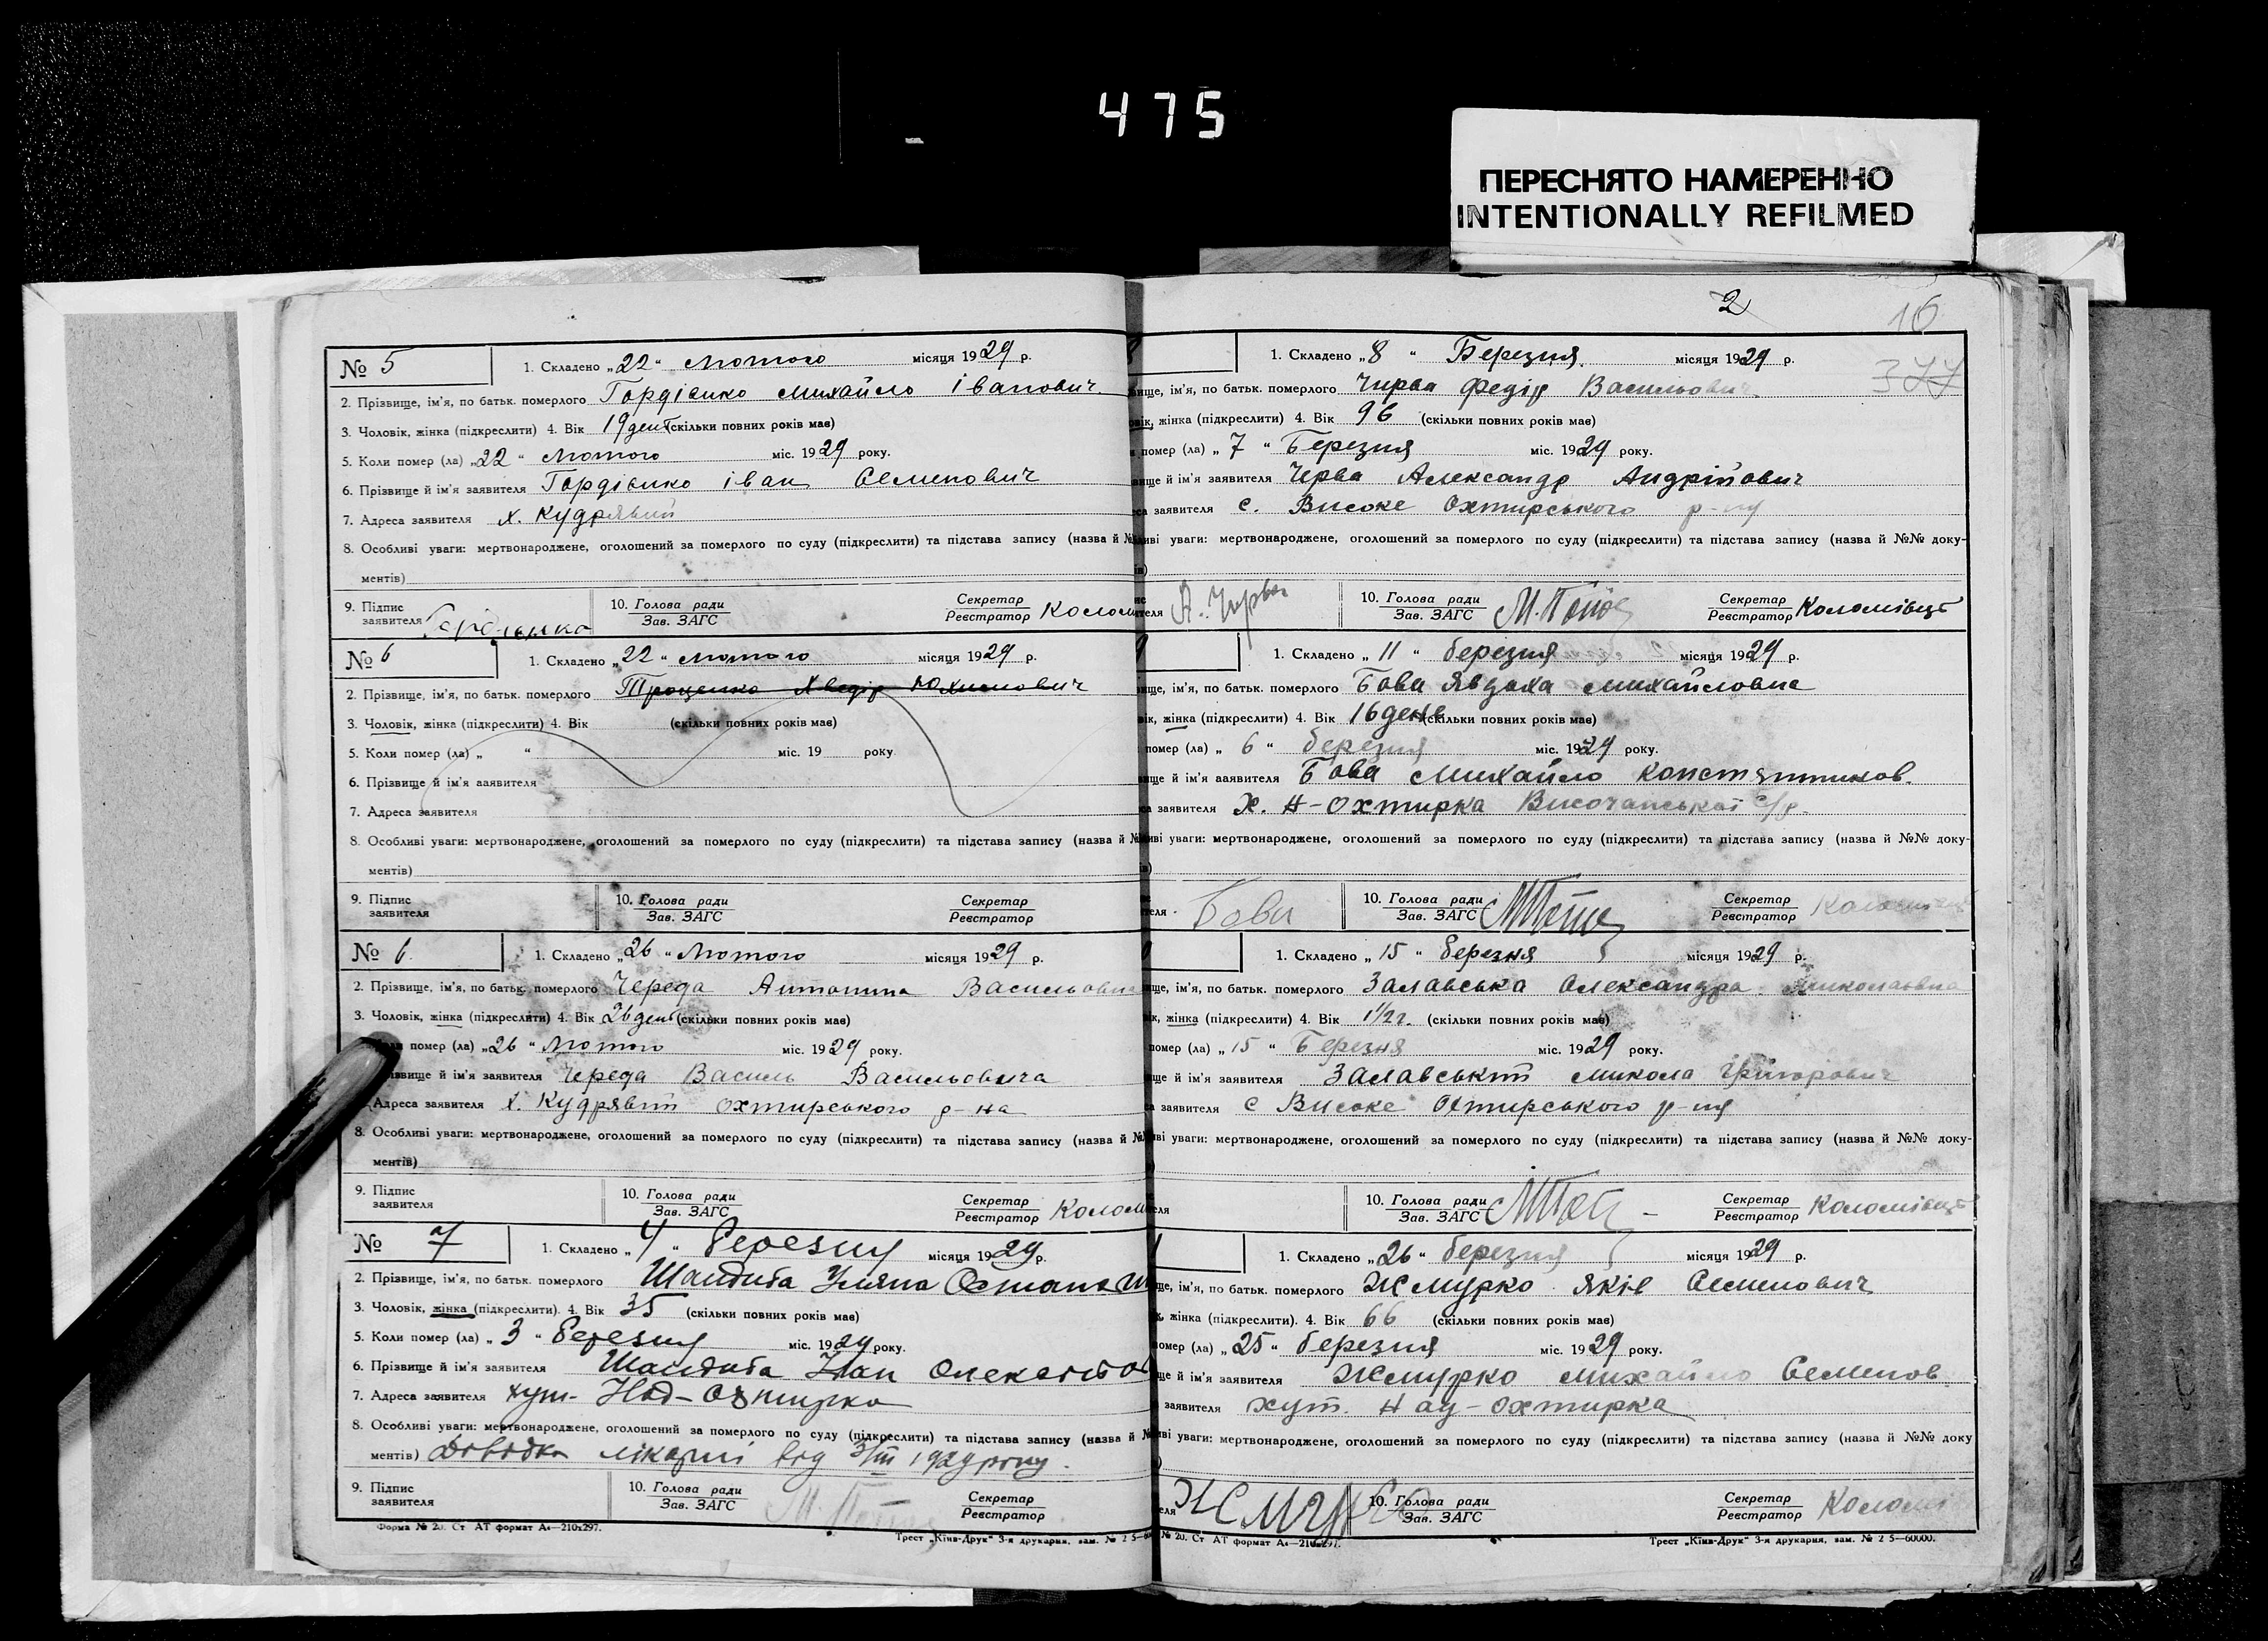 475
ПЕРЕСНЯТО НАМЕРЕННО
INTENTIONALLY REFILMED
№ 5
1. Складено „22“ Лютого місяця 1929 р.
2. Прізвище, ім'я, по батьк. померлого Гордієнко Михайло Іванович
3. Чоловік, жінка (підкреслити) 4. Вік 19 ден (скільки повних років має)
5. Коли помер (ла) „22“ Лютого міс. 1929 року.
6. Прізвище й ім'я заявителя Гордієнко Іван Семенович
7. Адреса заявителя х. Кудрявий
8. Особливі уваги: мертвонароджене, оголошений за померлого по суду (підкреслити) та підстава запису (назва й №
ментів)
9. Підпис заявителя
10. Голова ради
Зав. ЗАГС
Секретар
Реєстратор Колом
№ 6
1. Складено „22“ Лютого місяця 1929 р.
2. Прізвище, ім'я, по батьк. померлого Троценко Хведір Юхимович
3. Чоловік, жінка (підкреслити) 4. Вік (скільки повних років має)
5. Коли помер (ла) „ “ міс. 19 року
6. Прізвище й ім'я заявителя
7. Адреса заявителя
8. Особливі уваги: мертвонароджене, оголошений за померлого по суду (підкреслити) та підстава запису (назва й №
ментів)
9. Підпис заявителя
10. Голова ради
Зав. ЗАГС
Секретар
Реєстратор
№ 6
1. Складено „26“ Лютого місяця 1929 р.
2. Прізвище, ім'я, по батьк. померлого Череда Антонина Васильовна
3. Чоловік, жінка (підкреслити) 4. Вік 26 ден (скільки повних років має)
помер (ла) „26“ Лютого міс. 1929 року.
ім'я заявителя Череда Василь Васильовича
Адреса заявителя х. Кудрявий Охтирського р-на
8. Особливі уваги: мертвонароджене, оголошений за померлого по суду (підкреслити) та підстава запису (назва й №
ментів)
9. Підпис заявителя
10. Голова ради
Зав. ЗАГС
Секретар
Реєстратор Колом
№ 7
1. Складено „4“ Березня місяця 1929 р.
2. Прізвище, ім'я, по батьк. померлого Уляна
3. Чоловік, жінка (підкреслити). 4. Вік 35 (скільки повних років має)
5. Коли помер (ла) „3“ Березня міс. 1929 року.
6. Прізвище й ім'я заявителя
7. Адреса заявителя хут- Над-Охтирка
8. Особливі уваги: мертвонароджене, оголошений за померлого по суду (підкреслити) та підстава запису (назва й №
ментів) Довідка лікарні від 3/III 1929 року.
9. Підпис заявителя
10. Голова ради
Зав. ЗАГС
Секретар
Реєстратор
Форма № 20. Ст АТ формат А4—210х297.
Трест „Київ-Друк“ 3-я друкарня, зам. № 2 5—
2
16
377
1. Складено „8“ Березня місяця 1929 р.
ім'я, по батьк. померлого Чирва Федір Васильович
жінка (підкреслити) 4. Вік 96 (скільки повних років має)
помер (ла) „7“ Березня міс. 1929 року.
й ім'я заявителя Черва Александр Андрійович
заявителя с. Високе Охтирського р-ну
уваги: мертвонароджене, оголошений за померлого по суду (підкреслити) та підстава запису (назва й №№ доку-
А. Чирва
10. Голова ради
Зав. ЗАГС М. Попов
Секретар
Реєстратор Коломієць
1. Складено „11“ березня місяця 1929 р.
ім'я, по батьк. померлого Бова Явдоха Михайловна
жінка (підкреслити) 4. Вік 16 день (скільки повних років має)
помер (ла) „6“ березня міс. 1929 року.
й ім'я заявителя Бова Михайло Константинов.
заявителя х. Н-Охтирка Височанської с/р.
уваги: мертвонароджене, оголошений за померлого по суду (підкреслити) та підстава запису (назва й №№ доку-
Бова
10. Голова ради
Зав. ЗАГС
Секретар
Реєстратор
1. Складено „15“ березня місяця 1929 р.
ім'я, по батьк. померлого Залавська Олександра Миколаівна
жінка (підкреслити) 4. Вік 1 1/2 г. (скільки повних років має)
помер (ла) „15“ Березня міс. 1929 року.
й ім'я заявителя Залавський Микола Григорович
заявителя с Високе Охтирського р-ня
уваги: мертвонароджене, оголошений за померлого по суду (підкреслити) та підстава запису (назва й №№ доку-
10. Голова ради
Зав. ЗАГС
Секретар
Реєстратор Коломієць
1. Складено „26“ березня місяця 1929 р.
ім'я, по батьк. померлого Жмурко Яків Семенович
жінка (підкреслити). 4. Вік 66 (скільки повних років має)
помер (ла) „25“ березня міс. 1929 року.
й ім'я заявителя Жмурко Михайло Семенов
заявителя хут. Над-Охтирка
уваги: мертвонароджене, оголошений за померлого по суду (підкреслити) та підстава запису (назва й №№ доку
Жмурко
10. Голова ради
Зав. ЗАГС
Секретар
Реєстратор Коломі
№ 20. Ст АТ формат А4—210х297.
Трест „Київ-Друк“ 3-я друкарня, зам. № 2 5—60000.